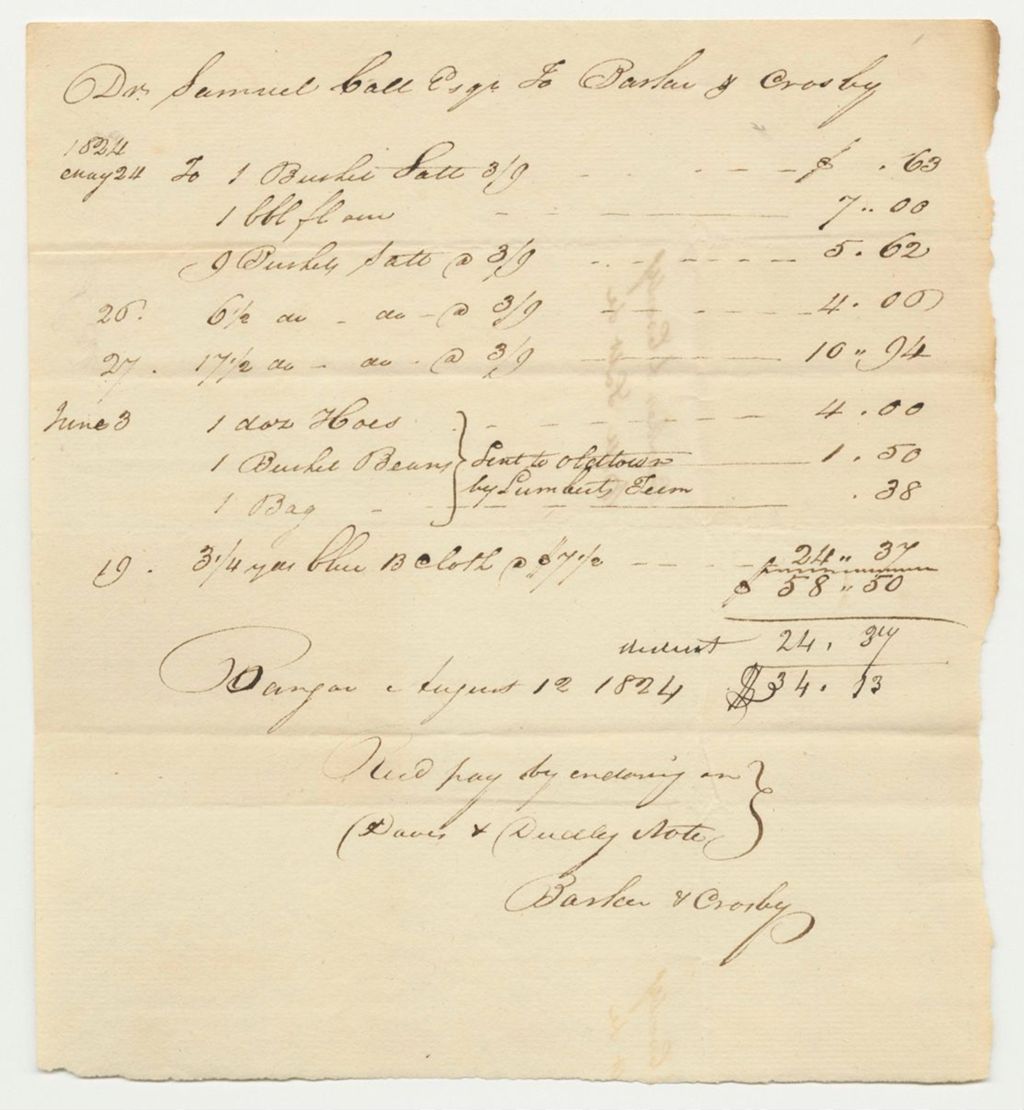 Dr. Samuel Call Esqr To Barker & Crosby
1824
May 24 To 1 Bushel Salt 3/9 $ .63
1 bbl flour 7.00
9 Bushels Salt @ 3/9 5.62
26. 6 1/2 do - do - @ 3/9 4.06
27. 17 1/2 do - do - @ 3/9 10.94
June 3 1 doz Hoes 4.00
1 Bushel Beans Sent to Oldtown 1.50
1 Bag by Lumberts Teem .38
19. 3 1/4 yds blue B Cloth @ $7 1/2 24.37
$ 58.50
deduct 24.37
Bangor August 12 1824 $34.13
Recd pay by endorsing on
Davis & Dudley Note
Barker & Crosby